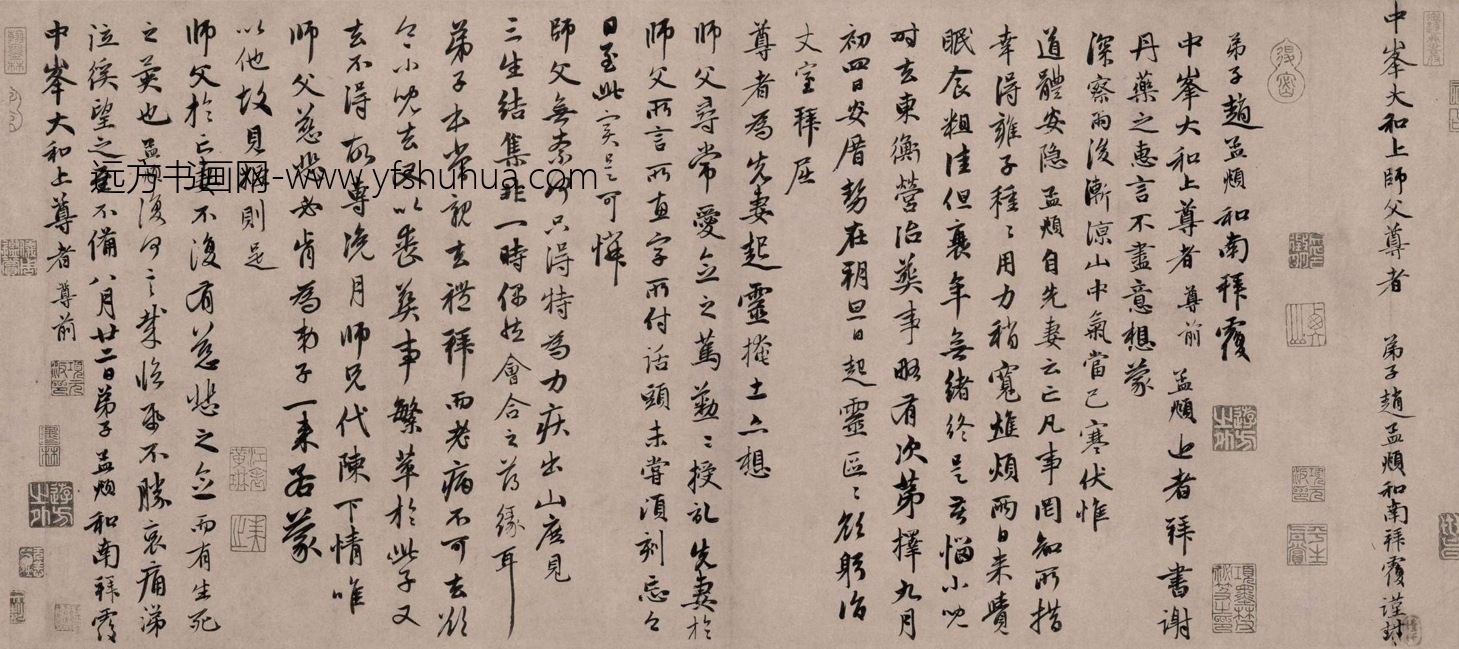 中峯大和上師父尊者 弟子趙孟頫和南拜覆謹封
弟子趙孟頫和南拜覆
中峯大和上尊者尊前孟頫近者拜書謝
丹藥之惠言不盡意想蒙
深察雨後漸涼山中氣當已寒伏惟
道體安隱孟頫自先妻云亡凡事罔知所措
幸得雍子種種用力稍寬燋煩兩日來覺
眠食粗佳但衰年無緒終是苦惱小兒
時去東衡營治葬事略有次第擇九月
初四日安厝勢在朔旦日起靈區區欲躬詣
丈室拜屈
尊者為先妻起靈掩土亦想
師父尋常愛念之篤懃懃授記先妻於
師父所言所惠字所付話頭未嘗頃刻忘今
日至此實是可憐
師父無奈何只得特為力疾出山庶見
三生結集非一時偶然會合之薄緣耳
弟子本當親去禮拜而老病不可去欲
令小兒去又以喪葬事繁萃於此子又
去不得故專浼月師兄代陳下情唯
師父慈悲必肯為弟子一来若蒙
以他故見却則是
師父於亡妻不復有慈悲之念而有生死
之異也孟頫復何言哉臨紙不勝哀痛涕
泣徯望之至不備八月廿二日弟子孟頫和南拜覆
中峯大和上尊者尊前
远方书画网-www.yfshuhua.com